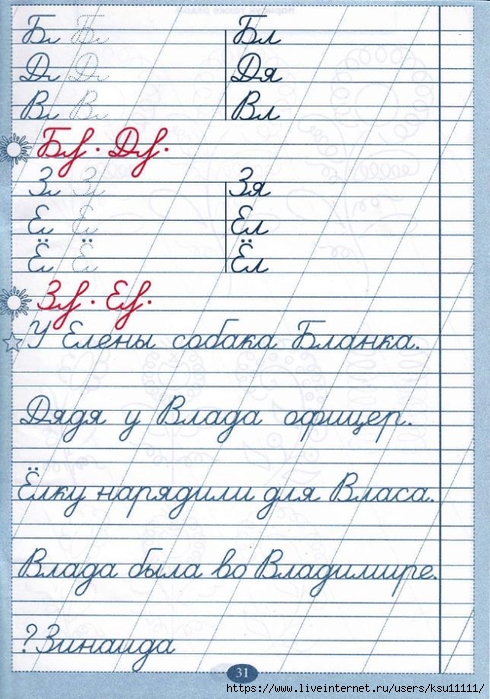 Бл Бл Бл
Дл Дл Дя
Вл Вл Вл
Зл Зл Зя
Ел Ел Ел
Ёл Ёл Ёл
У Елены собака Бланка.
Дядя у Влада офицер.
Ёлку нарядили для Власа.
Влада была во Владимире.
?Зинаида
31
https://www.liveinternet.ru/users/ksu11111/